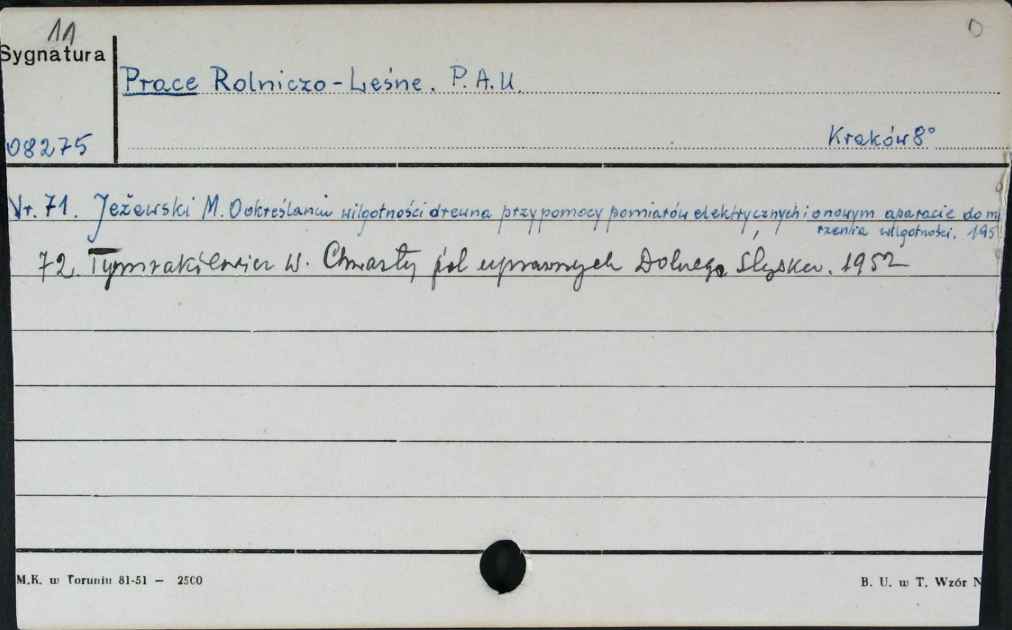 11
Sygnatura
Prace Rolniczo-Leśne. P.A.U.
08275
Kraków 8°
Nr. 71. Jeżewski M. O określaniu wilgotności drewna przy pomocy pomiarów elektrycznych i o nowym aparacie do mie
rzenia wilgotności. 195
72. Tymrakiewicz W. Chwasty pól uprawnych Dolnego Śląska. 1952
M.K. w Toruniu 81-51 — 2500
B. U. w T. Wzór N